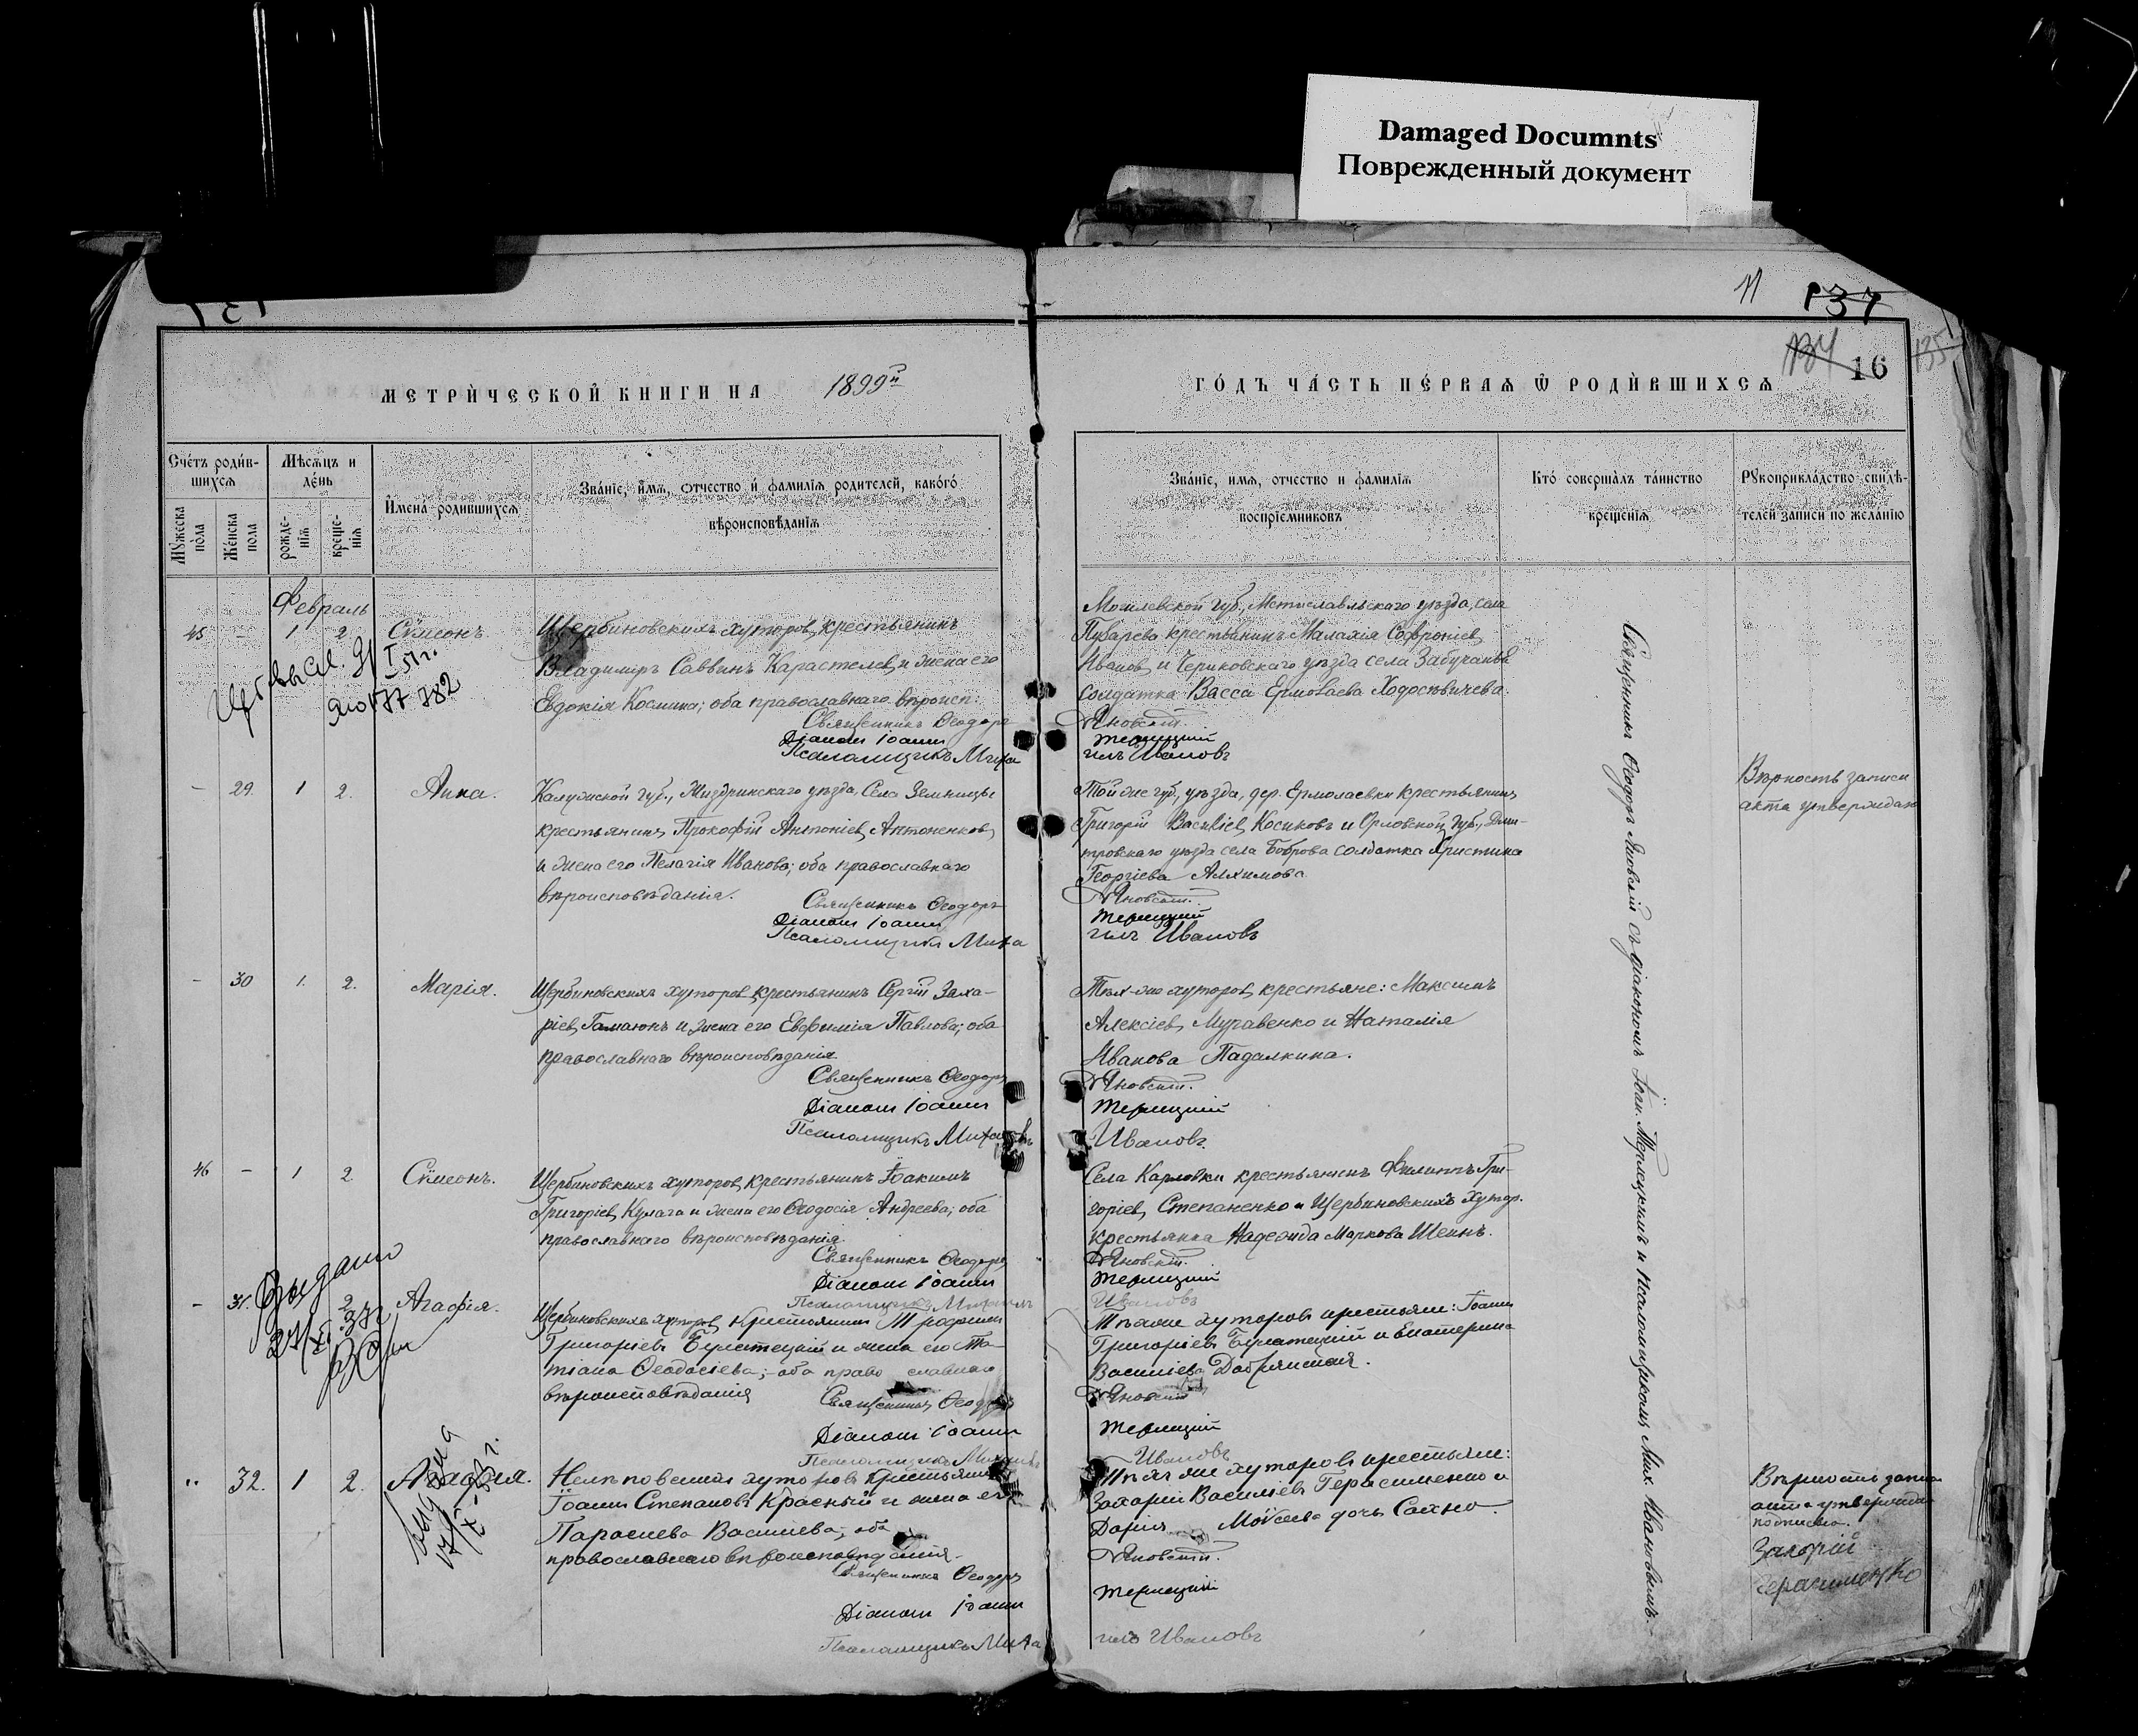 Damaged Documnts
Поврежденный документ
11
137
134
16
135
МЕТРИ́ЧЕСКОЙ КНИГИ НА 1899й
ГО́ДЪ ЧА́СТЬ ПЕ́РВАѦ Ѿ РОДИ́ВШИХСѦ
Сче́тъ роди́в-
шихсѧ
Мѣсѧцъ и
де́нь
Мꙋ́жеска пола
Же́нска пола
рожде́-
нїѧ
креще́-
нїѧ
И҆мена̀ роди́вшихсѧ
Зва́нїе, и҆́мѧ, ѻтчество и҆ фамилїѧ родителей, како́гѡ
вѣроисповѣданїѧ
Зва́нїе, имѧ, отчество и фамилїѧ
воспрїемниковъ
Кто̀ соверша́лъ та́инство
креще́нїѧ
Рꙋкоприкла́дство свидѣ́-
телей записи по желанїю
Февраль
45 - 1 2 Сѷмеонъ.
Щербиновскихъ хуторовъ крестьянинъ
Владимiръ Саввинъ Карастелевъ и жена его
Евдокiя Космина; оба православнаго вѣроисп:
Священникъ Ѳеодоръ
Дiаконъ Iоаннъ
Псаломщикъ Миха
Могилевской губ., Мстиславльскаго уѣзда, села
крестьянинъ Малахiя Софронiевъ
Ивановъ и Чериковскаго уѣзда села
солдатка Васса Ермолаева Ходосѣвичева.
Яновскiй.
Терлецкiй
илъ Ивановъ
- 29. 1 2. Анна.
Калужской губ., Жиздринскаго уѣзда, Села Земницы
крестьянинъ Прокофiй Антонiевъ Антоненковъ
и жена его Пелагiя Иванова; оба православнаго
вѣроисповѣданiя.
Священникъ Ѳеодоръ
Дiаконъ Iоаннъ
Псаломщикъ Миха
Той же губ., уѣзда, дер. Ермолаевки крестьянинъ
Григорiй Василiевъ Косиковъ и Орловской губ., Дми-
тровскаго уѣзда села Боброва солдатка Христина
Георгiева Алхимова
Яновскiй.
Терлецкiй
илъ Ивановъ
Вѣрность записи
акта утверждаю
- 30 1. 2. Марiя.
Щербиновскихъ хуторовъ крестьянинъ Сергiй Заха-
рiевъ Гамаюнъ и жена его Евфимiя Павлова; оба
православнаго вѣроисповѣданiя
Священникъ Ѳеодоръ
Дiаконъ Iоаннъ
Псаломщикъ Михаилъ
Тѣхъ-же хуторовъ крестьяне: Максимъ
Алексiевъ Муравенко и Наталiя
Иванова Падалкина.
Яновскiй.
Терлецкiй
Ивановъ.
46 - 1 2. Сѷмеонъ.
Щербиновскихъ хуторовъ крестьянинъ Iоакимъ
Григорiевъ Кулага и жена его Ѳеодосiя Андреева; оба
православнаго вѣроисповѣданiя.
Священникъ Ѳеодоръ
Дiаконъ Iоаннъ
Псаломщикъ Михаилъ
Села Карловки крестьянинъ Филиппъ Гри-
горiевъ Степаненко и Щербиновскихъ хутор.
крестьянка Надежда Маркова Шеинъ.
Яновскiй.
Терлецкiй
Ивановъ
- 31. 2 Агафiя.
Выдано
Щербиновскихъ хуторовъ крестьянинъ Трофимъ
Григорьевъ Булатецкiй и жена его Та-
тiана Ѳеодосiева; оба православнаго
вѣроисповѣданiя
Священникъ Ѳеодоръ
Дiаконъ Iоаннъ
Псаломщикъ Михаилъ
Тѣхъ же хуторовъ крестьяне: Iоаннъ
Григорьевъ Булатецкiй и Екатерина
Василiева Добрянская.
Яновскiй
Терлецкiй
Ивановъ
32. 1 2. Агафiя.
Нелѣповскихъ хуторовъ крестьянинъ
Iоаннъ Степановъ Красный и жена его
Параскева Василiева; оба
православнаго вѣроисповѣданiя.
Священникъ Ѳеодоръ
Дiаконъ Iоаннъ
Псаломщикъ Миха
Тѣхъ же хуторовъ крестьяне:
Захарiй Василiевъ Герасименко и
Дарiя Моѷсеева дочь Сахно.
Яновскiй.
Терлецкiй
илъ Ивановъ
Вѣрность записи
акта утвержда
Захарiй
Герасименко
Священникъ Ѳеодоръ Яновскiй съ дiакономъ Iоан. Терлецкимъ и псаломщикомъ Мих. Ивановымъ.